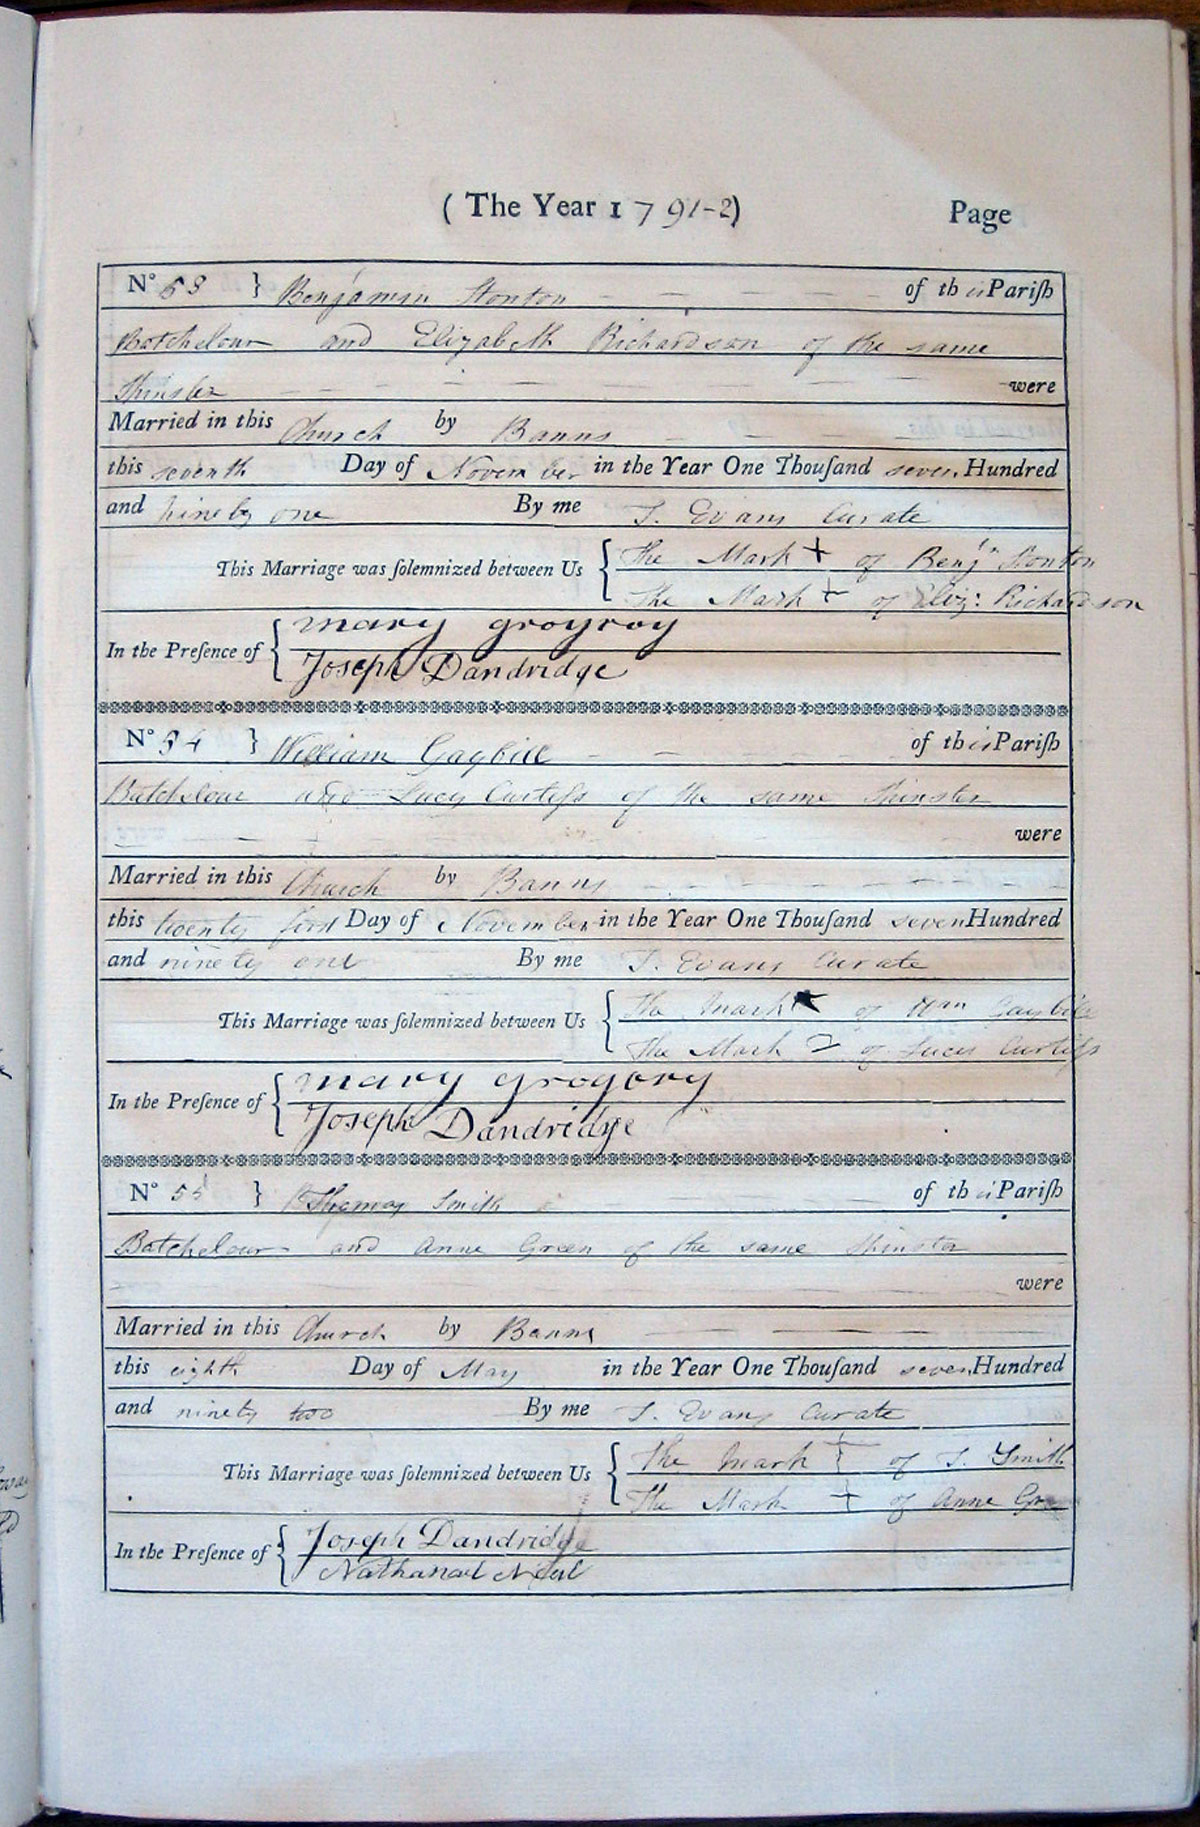 ( The Year 1791-2) Page
N° 53 } Benjamin Stonton of this Pariſh
Batchelour and Elizabeth Richardson of the same
Spinster were
Married in this Church by Banns
this seventh Day of November in the Year One Thouſand seven Hundred
and ninety one By me T. Evans Curate
This Marriage was ſolemnized between Us { The Mark + of Benjn Stonton
The Mark + of Eliz: Richardson
In the Preſence of { mary groyroy
Joseph Dandridge
N° 54 } William Gaybill of this Pariſh
Batchelour and Lucy Curtiſs of the same Spinster
were
Married in this Church by Banns
this twenty first Day of November in the Year One Thouſand seven Hundred
and ninety one By me T. Evans Curate
This Marriage was ſolemnized between Us { The Mark of Wm Gaybill
The Mark of Lucy Curtiſs
In the Preſence of { mary grogory
Joseph Dandridge
N° 55 } Thomas Smith of this Pariſh
Batchelour and Anne Green of the same Spinster
were
Married in this Church by Banns
this eighth Day of May in the Year One Thouſand seven Hundred
and ninety two By me T. Evans Curate
This Marriage was ſolemnized between Us { The Mark + of T. Smith
The Mark + of Anne
In the Preſence of { Joseph Dandridge
Nathanael